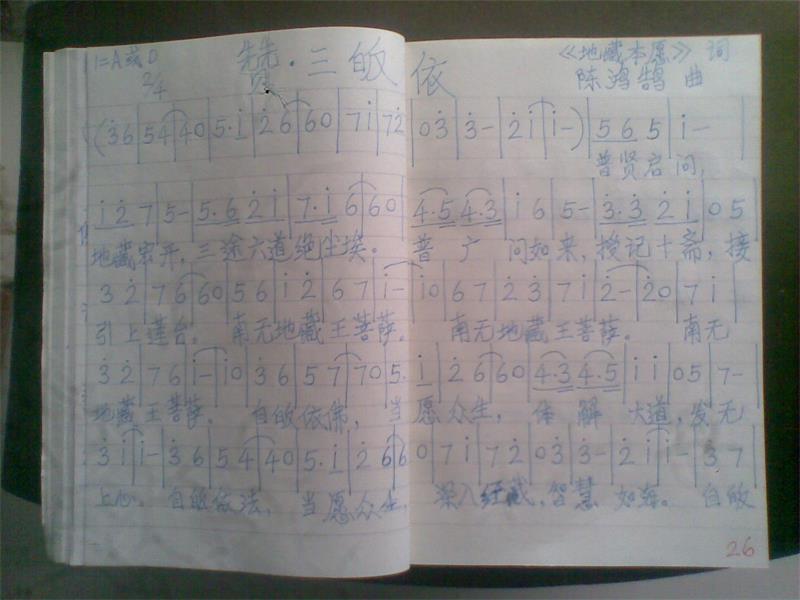 1=A或D 赞·三皈依 《地藏本愿》词
2/4 陈鸿鹄 曲
(3̇6|54|40|5·i̇|2̇6|60|7i̇|72̇|03̇|3̇-|2̇i̇|i̇-)|56 5|i̇-
普贤启问,
i̇2̇ 7|5-|5·6 2̇i̇|7·i̇ 6|60|4·5 4·3|i̇6|5-|3̇·3̇ 2̇i̇|05
地藏宏开,三途六道绝尘埃。普广问如来,授记十斋,接
32̇|76|60|56|i̇2̇|67|i̇-|i̇0|67|2̇3̇|7i̇|2̇-|2̇0|7i̇
引上莲台。南无地藏王菩萨。南无地藏王菩萨。南无
3̇2̇|76|i̇-|i̇0|36|57|70|5·i̇|2̇6|60|4·3 4·5|i̇i̇|05|7-
地藏王菩萨。自皈依佛,当愿众生,体解大道,发无
3̇i̇|i̇-|3̇6|54|40|5·i̇|2̇6|60|7i̇|72̇|03̇|3̇-|2̇i̇|i̇-|37
上心。自皈依法,当愿众生,深入经藏,智慧如海。自皈
26